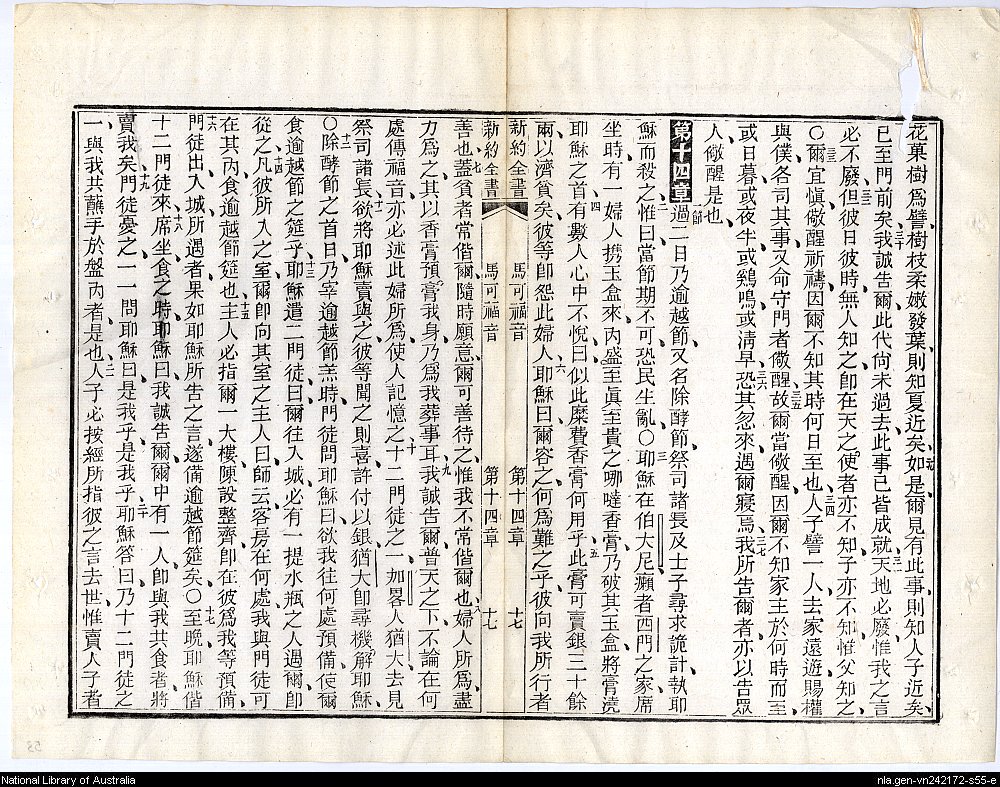 花菓樹爲譬樹枝柔嫩發葉則知夏近矣如是爾見有此事則知人子近矣
已至門前矣我誠告爾此代尙未過去此事已皆成就天地必廢惟我之言
必不廢但彼日彼時無人知之卽在天之使者亦不知子亦不知惟父知之
〇爾宜愼儆醒祈禱因爾不知其時何日至也人子譬一人去家遠遊賜權
與僕各司其事又命守門者儆醒故爾當儆醒因爾不知家主於何時而至
或日暮或夜半或鷄鳴或淸早恐其忽來遇爾寢焉我所告爾者亦以告眾
人儆醒是也
第十四章過二日乃逾越節又名除酵節祭司諸長及士子尋求詭計執耶
穌而殺之惟曰當節期不可恐民生亂〇耶穌在伯大尼癩者西門之家席
坐時有一婦人携玉盒來內盛至眞至貴之哪噠香膏乃破其玉盒將膏澆
耶穌之首有數人心中不悅曰似此糜費香膏何用乎此膏可賣銀三十餘
兩以濟貧矣彼等卽怨此婦人耶穌曰爾容之何爲難之乎彼向我所行者
新約全書 馬可福音 第十四章 十七
新約全書 馬可福音 第十四章 十七
善也蓋貧者常偕爾隨時願意爾可善待之惟我不常偕爾也婦人所爲盡
力爲之其以香膏預膏我身乃爲我葬事耳我誠告爾普天之下不論在何
處傳福音亦必述此婦所爲使人記憶之十二門徒之一加畧人猶大去見
祭司諸長欲將耶穌賣與之彼等聞之則喜許付以銀猶大卽尋機解耶穌
〇除酵節之首日乃宰逾越節羔時門徒問耶穌曰欲我往何處預備使爾
食逾越節之筵乎耶穌遣二門徒曰爾往入城必有一提水瓶之人遇爾卽
從之凡彼所入之室爾卽向其室之主人曰師云客房在何處我與門徒可
在其內食逾越節筵也主人必指爾一大樓陳設整齊卽在彼爲我等預備
門徒出入城所遇者果如耶穌所告之言遂備逾越節筵矣〇至晚耶穌偕
十二門徒來席坐食之時耶穌曰我誠告爾爾中有一人卽與我共食者將
賣我矣門徒憂之一一問耶穌曰是我乎是我乎耶穌答曰乃十二門徒之
一與我共蘸手於盤內者是也人子必按經所指彼之言去世惟賣人子者
National Library of Australia
nla.gen-vn242172-s55-e